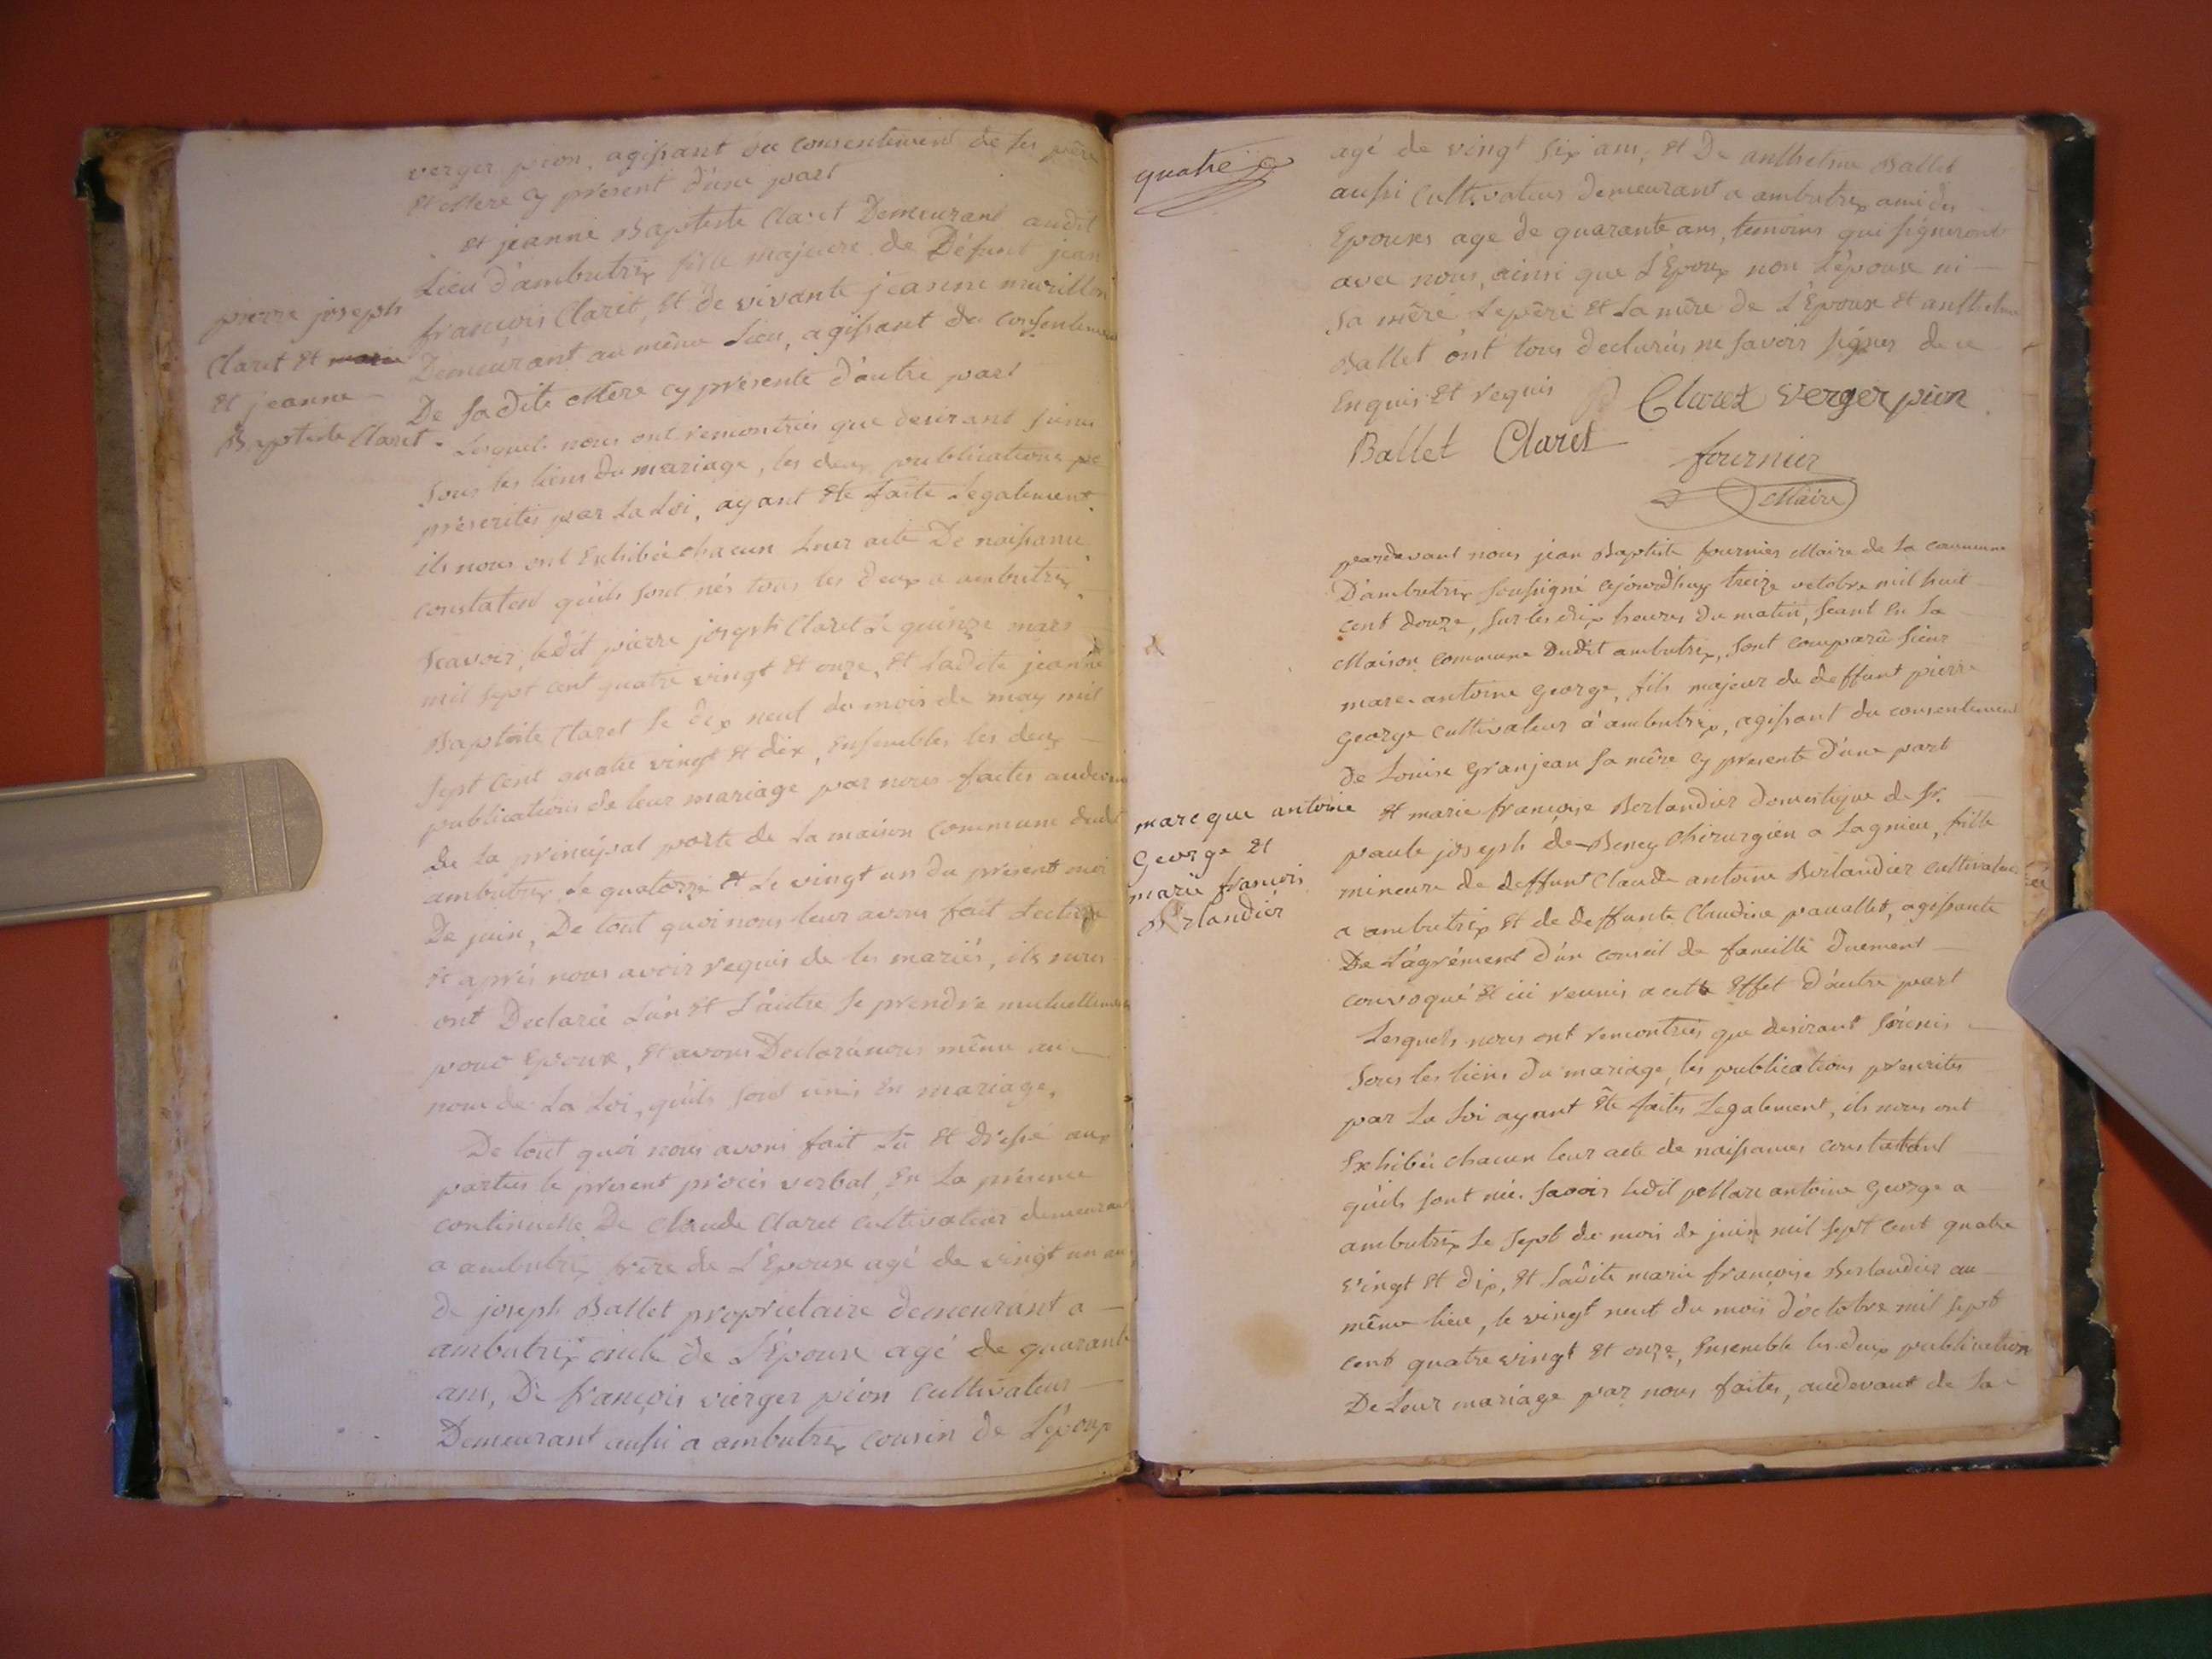 verger pion, agissant du consentement de ses père
et Mere cy present d'une part
et jeanne Baptiste Claret Demeurant audit
Lieu d'ambutrix fille majeure de Défunt jean
françois Claret, et de vivante jeanne murillon
Demeurant au même Lieu, agissant du consentement
De sadite Mère cy présente d'autre part
pierre joseph
Claret et marie
et jeanne
Baptiste Claret
Lesquels nous ont remontrés que desirant s'unir
sous les liens du mariage, les deux publications
prescrites par La Loi, ayant été faite Legalement
ils nous ont Exhibée chacun Leur acte De naissance
constatent qu'ils sont nés tous les deux a ambutrix
Scavoir, ledit pierre joseph Claret Le quinze mars
mil sept cent quatre vingt et onze, et Ladite jeanne
Baptiste Claret Le dix neuf du mois de may mil
sept cent quatre vingt et dix, Ensembles les deux
publications de leur mariage par nous faites audevant
De La principal porte de La maison Commune dudit
ambutrix Le quatorze et Le vingt un du présent mois
De juin, De tout quoi nous leur avons fait Lecture
et aprés nous avoir requis de les mariés, ils nous
ont Declarée L'un et L'autre se prendre mutuellement
pour Epoux, et avons Declaré nous même au
nom de La Loi, qu'ils sont unis En mariage,
De tout quoi nous avons fait Lu et dressé aux
parties le present procès verbal, En La présence
continuelle De Claude Claret cultivateur demeurant
a ambutrix frère de L'Epouse agé de vingt un ans
de joseph Ballet proprietaire demeurant a
ambutrix oncle de L'Epoux agé de quarante
ans, De françois vierger pion cultivateur
Demeurant aussi a ambutrix cousin de L'époux
quatre
agé de vingt six ans, et De anthelme Ballet
aussi Cultivateur demeurant a ambutrix ami des
Epouxes age de quarante ans, temoins qui signeront
avec nous, ainsi que L'Epoux non L'épouse ni
sa mère Le père et La mère de L'Epoux et anthelme
Ballet ont tous declarés ne savoir signer de ce
Enquis et requis P Claret verger pion
Ballet Claret
fournier
Maire
pardevant nous jean Baptiste fournier Maire de La commune
D'ambutrix soussigné cejourd'huy treize octobre mil huit
cent douze, sur les dix heures du matin, séant En La
Maison Commune Dudit ambutrix, sont comparû sieur
marc antoine George, fils majeur de deffunt pierre
George cultivateur a ambutrix, agissant du consentement
de Louise Granjean sa mère cy presente d'une part
marcque antoine
George et
marie francois
Berlandier
et marie françoise Berlandier domestique de sr.
paule joseph de Beney Chirurgien a Lagnieu, fille
mineure de deffunt Claude antoine Berlandier cultivateur
a ambutrix et de deffunte Claudine pauallet, agissante
De L'agrément d'un conseil de famille duement
convoqué et ici reunis a cette Effet d'autre part
Lesquels nous ont remontrés que desirant s'unis
sous les liens du mariage, les publications prescrites
par La Loi ayant été faites Legalement, ils nous ont
Exhibée chacun leur acte de naissances constatant
qu'ils sont née. savoir ledit Marc antoine George a
ambutrix Le sept du mois de juin mil sept cent quatre
vingt et dix, et Ladite marie françoise Berlandier au
même lieu, le vingt neuf du mois d'octobre mil sept
cent quatre vingt et onze, Ensemble les deux publication
De Leur mariage par nous faites, audevant de La